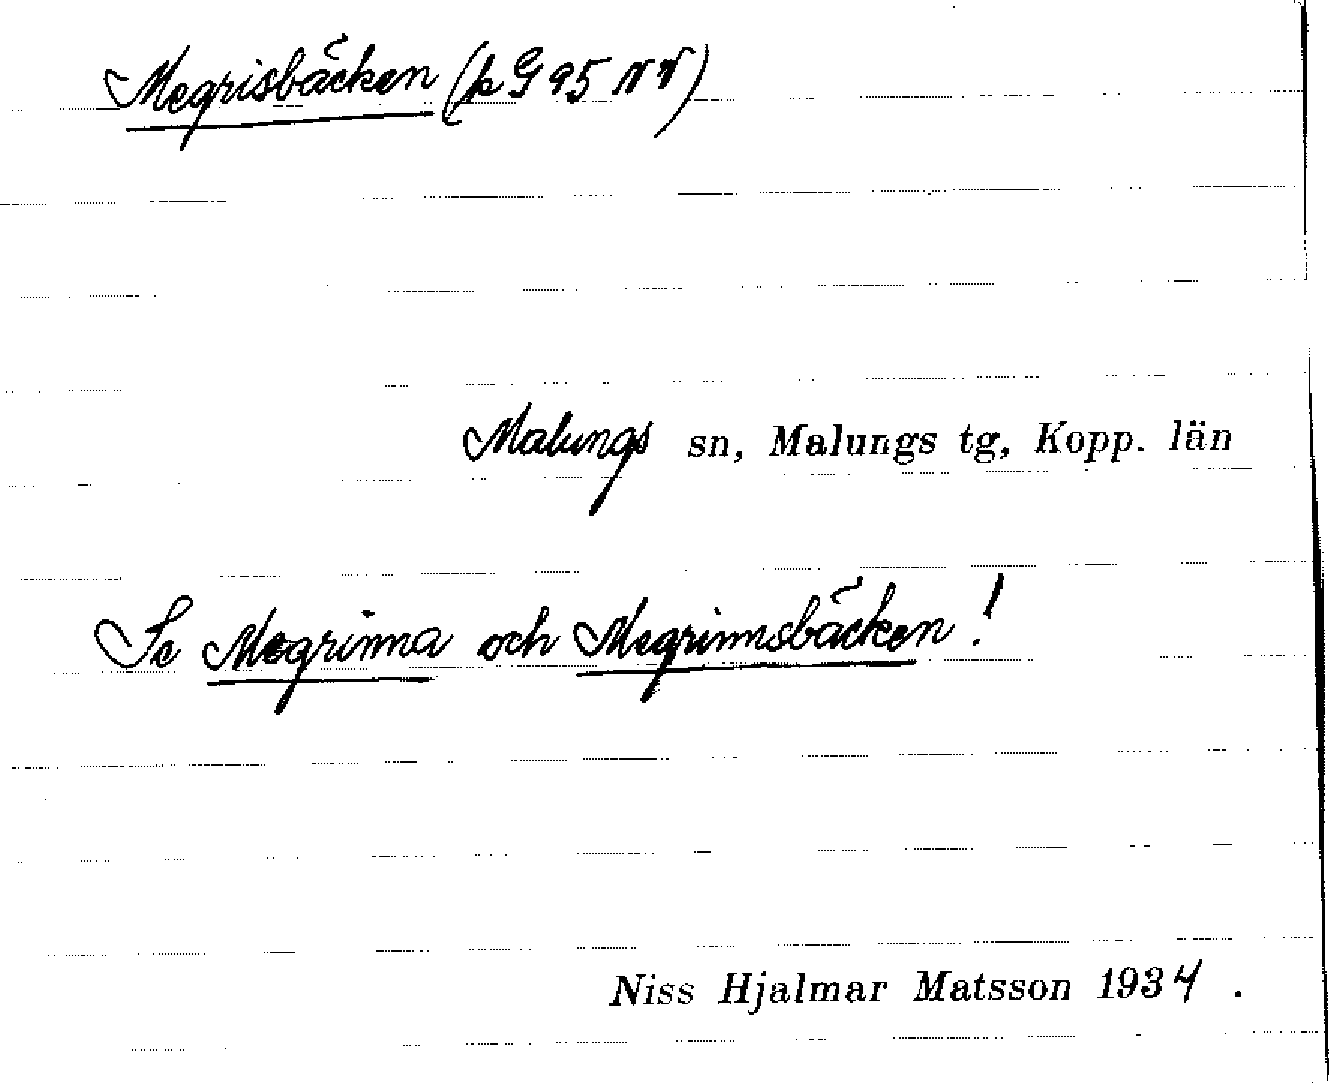 Megrisbäcken (k G 95 NV)
Malungs sn, Malungs tg, Kopp. län
Se Megrinna och Megrinnsbäcken!
Niss Hjalmar Matsson 1934.